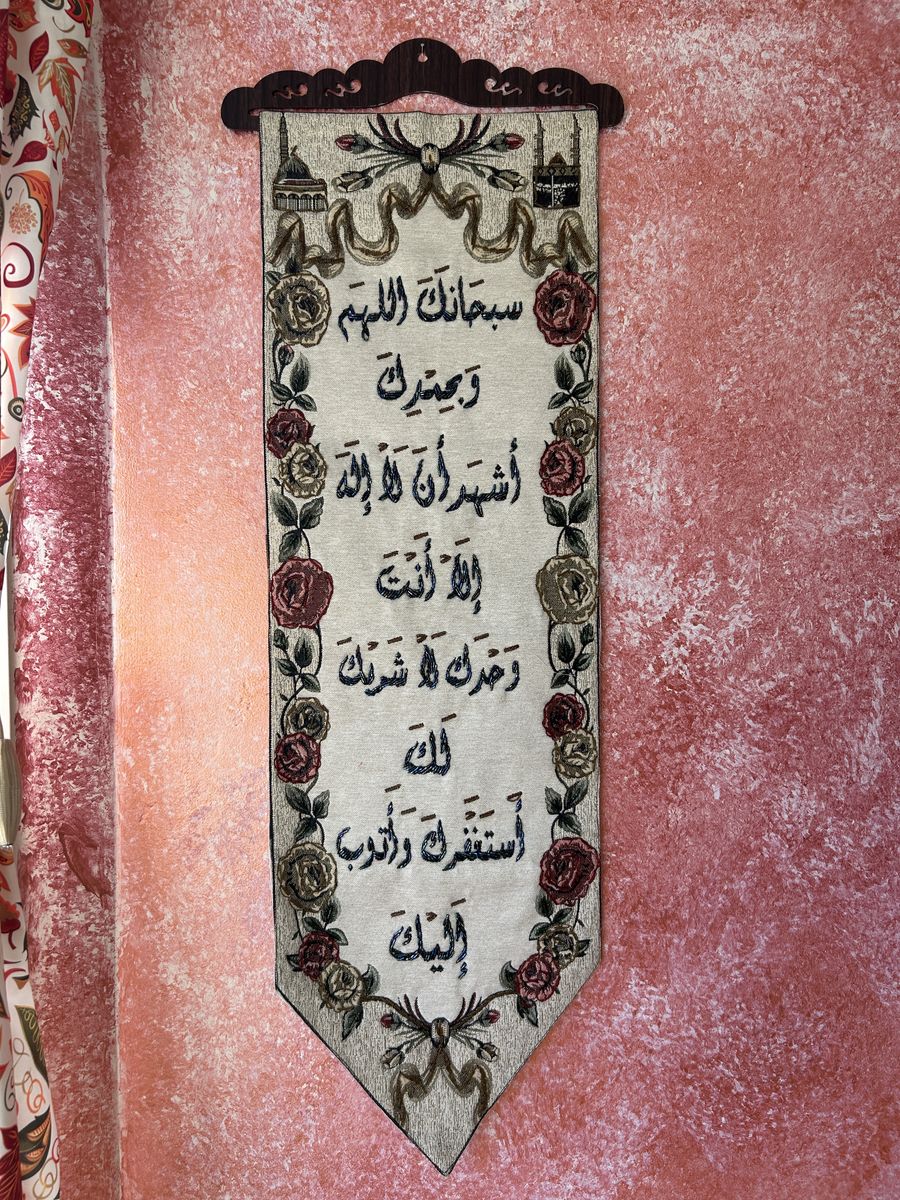 سبحَانكَ اللهَم
وَبحِمْدِكَ
أشهَد أنَ لَاْ إلَهَ
إلَاْ أَنْتَ
وَحْدَك لَاْ شَريْكَ
لَكَ
أَستَغْفرَكَ وَأَتوب
إَليْكَ